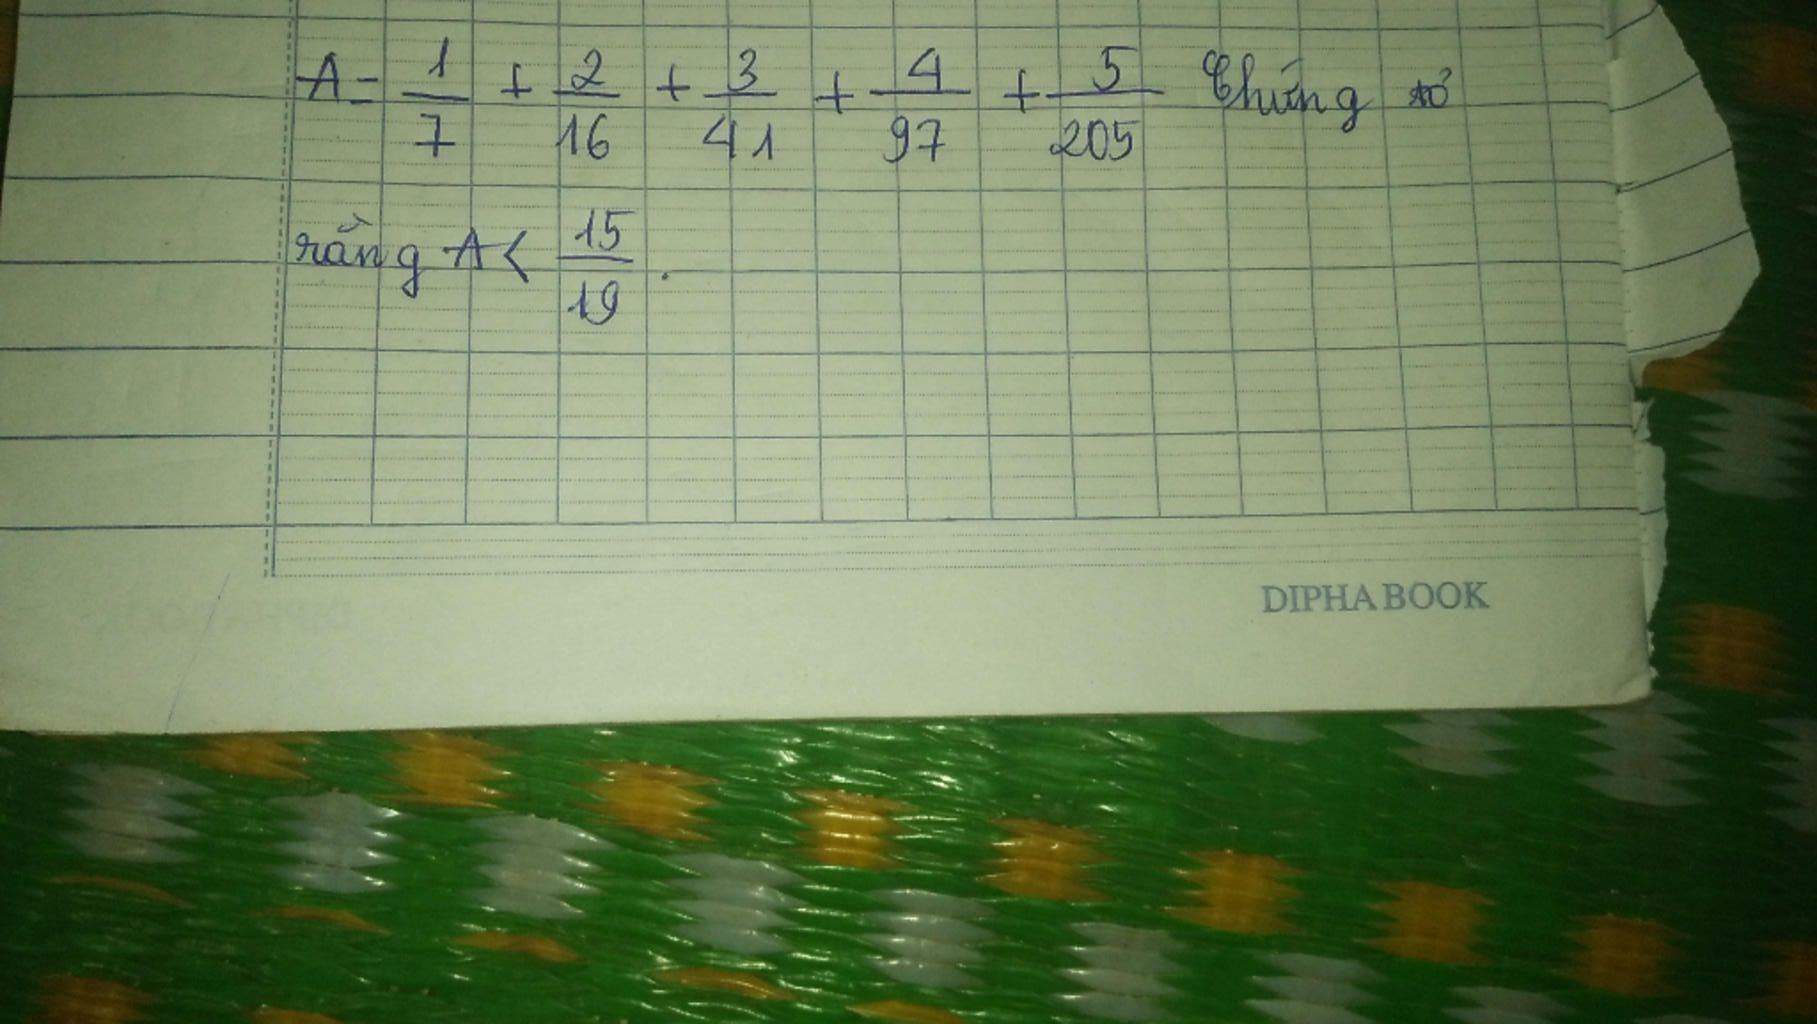 A = 1/7 + 2/16 + 3/41 + 4/97 + 5/205 Chứng tỏ
rằng A < 15/19.
DIPHA BOOK